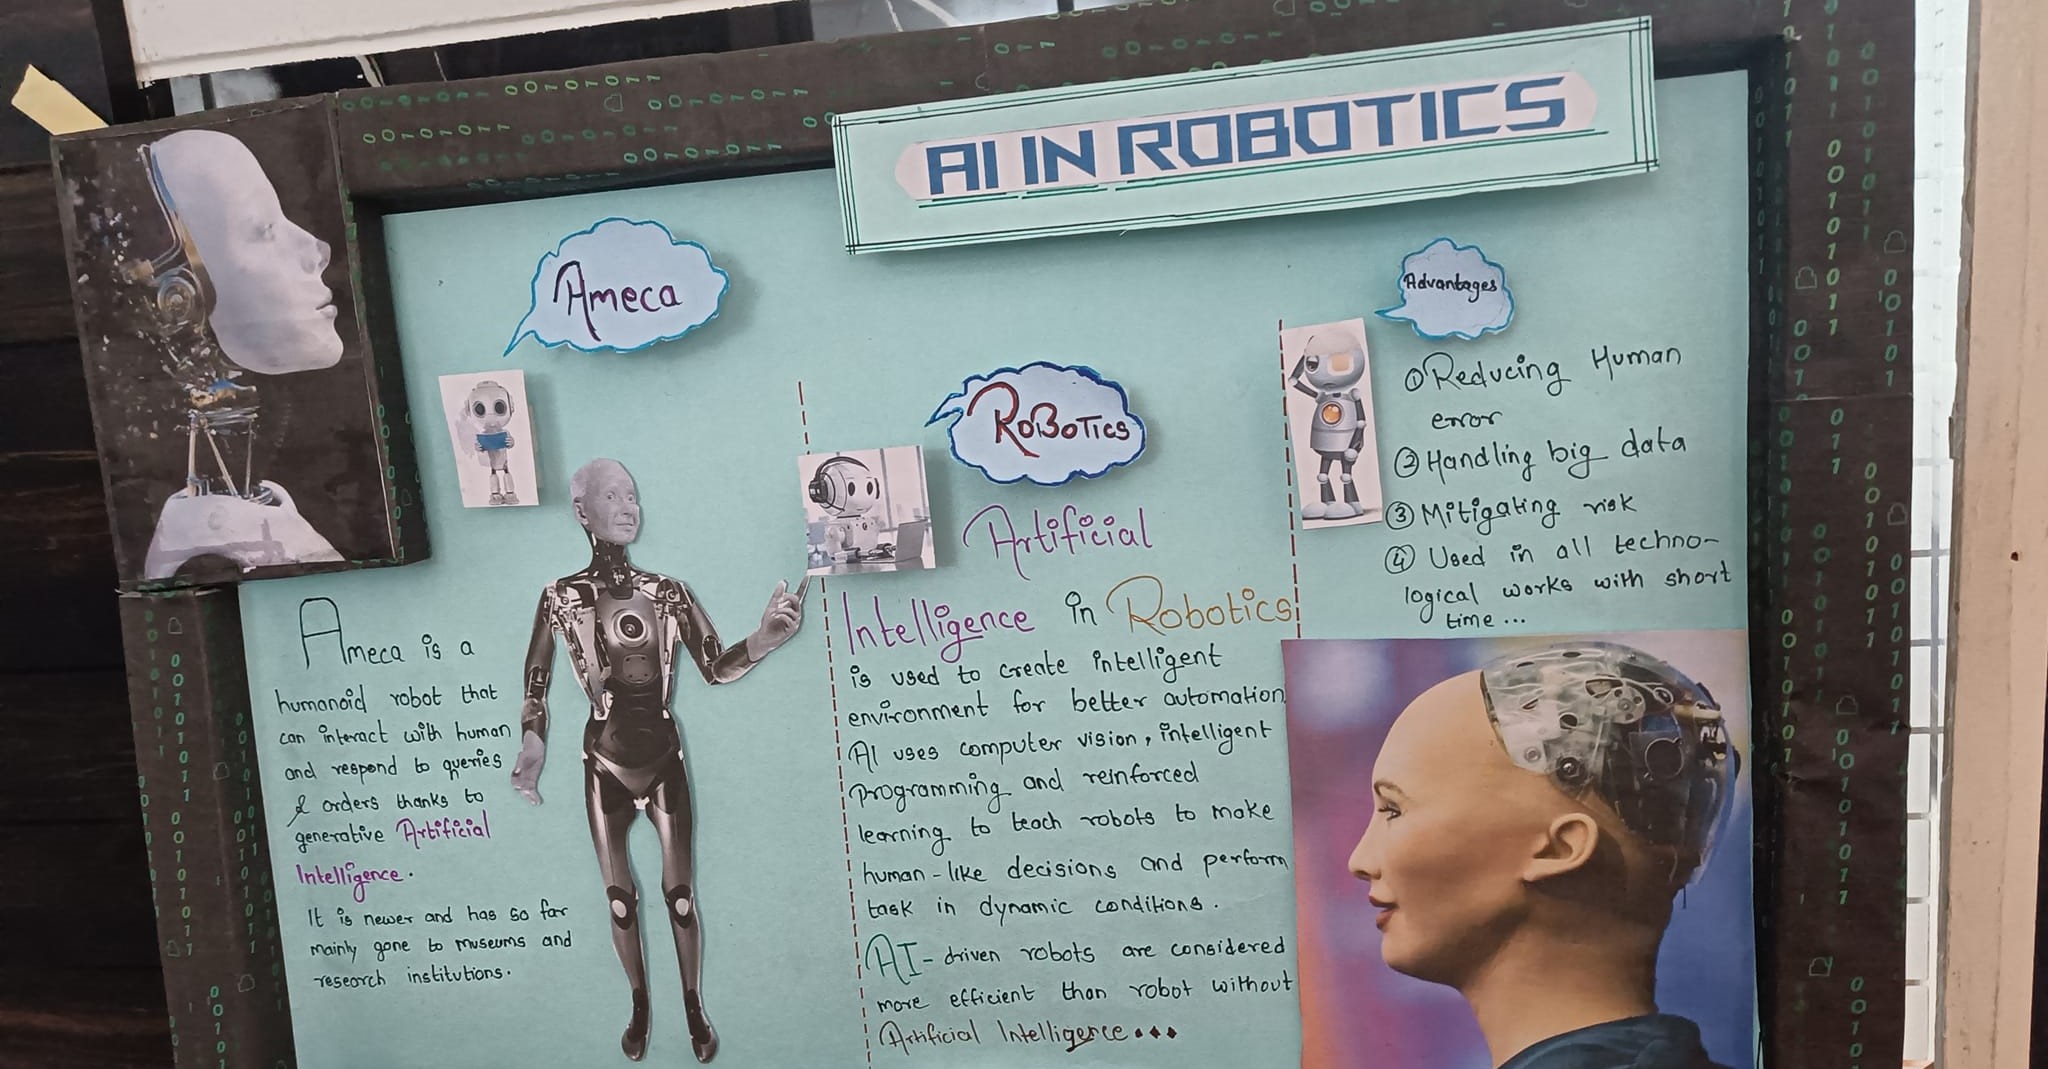 AI IN ROBOTICS
Ameca
Ameca is a
humanoid robot that
can interact with human
and respond to queries
& orders thanks to
generative Artificial
Intelligence.
It is newer and has so far
mainly gone to museums and
research institutions.
RoBoTics
Artificial
Intelligence in Robotics
is used to create intelligent
environment for better automation.
AI uses computer vision, intelligent
programming and reinforced
learning to teach robots to make
human-like decisions and perform
task in dynamic conditions.
AI-driven robots are considered
more efficient than robot without
Artificial Intelligence...
Advantages
① Reducing Human
error
② Handling big data
③ Mitigating risk
④ Used in all techno-
logical works with short
time...